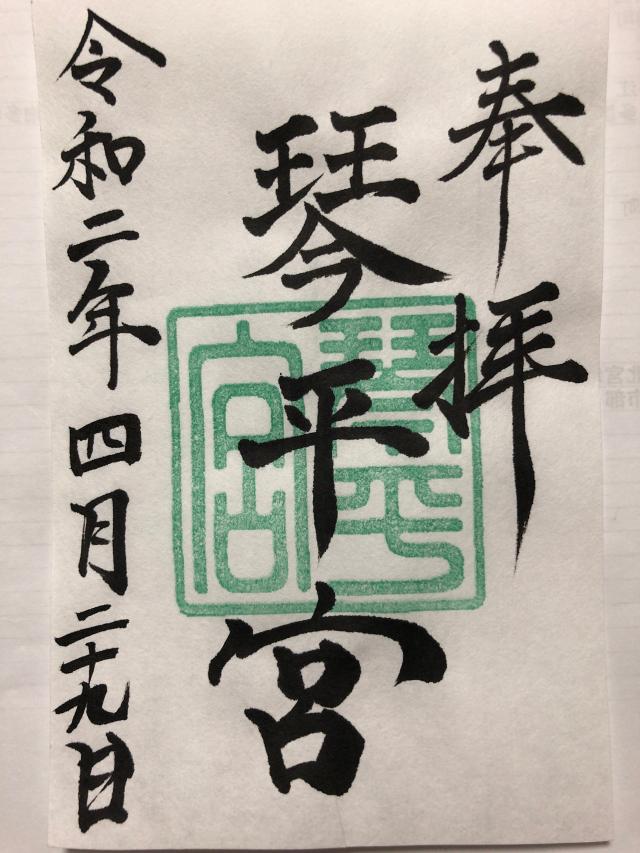 奉拝
琴平宮
琴平宮
令和二年四月二十九日